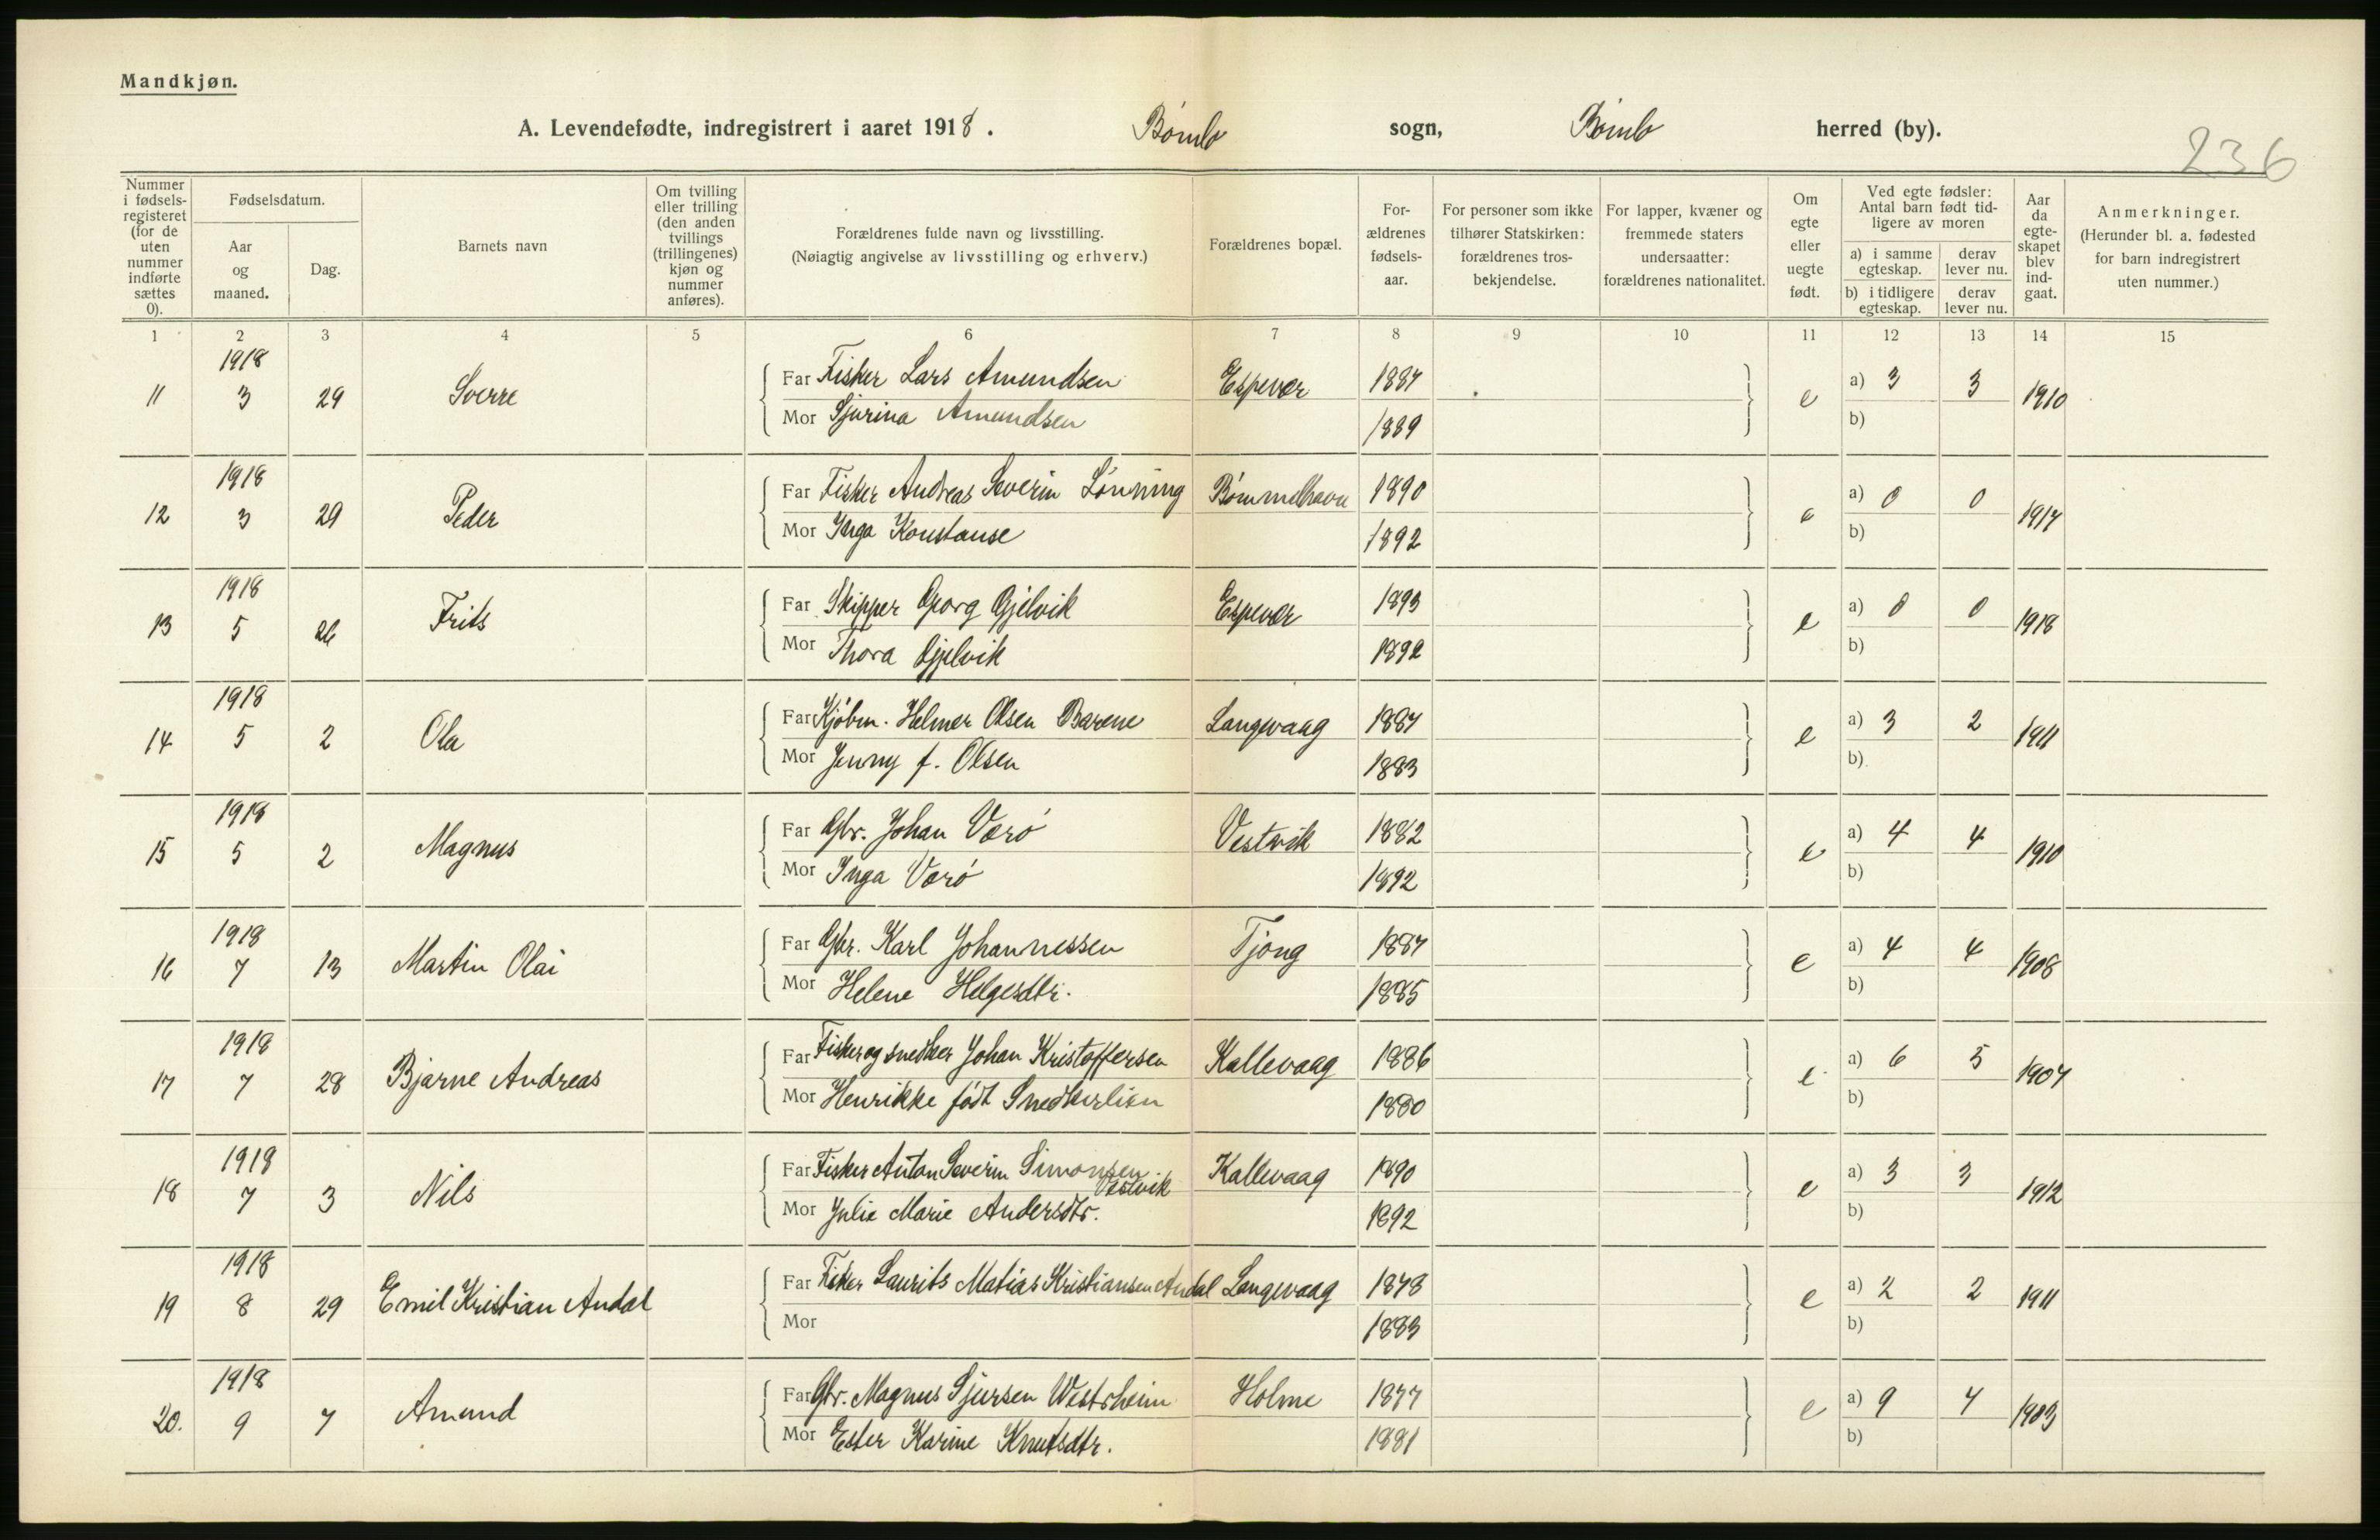 Mandkjøn.
A. Levendefødte, indregistrert i aaret 1918. Bømlo sogn, Bømlo herred (by).
236
Nummer i fødselsregisteret (for de uten nummer indførte sættes 0).
Fødselsdatum.
Aar og maaned.
Dag.
Barnets navn
Om tvilling eller trilling (den anden tvillings (trillingenes) kjøn og nummer anføres).
Forældrenes fulde navn og livsstilling.
(Nøiagtig angivelse av livsstilling og erhverv.)
Forældrenes bopæl.
Forældrenes fødselsaar.
For personer som ikke tilhører Statskirken: forældrenes trosbekjendelse.
For lapper, kvæner og fremmede staters undersaatter: forældrenes nationalitet.
Om egte eller uegte født.
Ved egte fødsler: Antal barn født tidligere av moren
a) i samme egteskap. derav lever nu.
b) i tidligere egteskap. derav lever nu.
Aar da egteskapet blev indgaat.
Anmerkninger.
(Herunder bl. a. fødested for barn indregistrert uten nummer.)
1 2 3 4 5 6 7 8 9 10 11 12 13 14 15
1918
11 3 29 Sverre Far Fisker Lars Amundsen Espevær 1887 e a) 3 3 1910
Mor Sjurina Amundsen 1889 b)
1918
12 3 29 Peder Far Fisker Andreas Severin Lønning Bømmelhavn 1890 e a) 0 0 1917
Mor Inga Konstanse 1892 b)
1918
13 5 26 Frits Far Skipper Georg Gjelvik Espevær 1893 e a) 0 0 1918
Mor Thora Gjelvik 1892 b)
1918
14 5 2 Ola Far Kjøbm. Helmer Olsen Barene Langevaag 1887 e a) 3 2 1911
Mor Jenny f. Olsen 1883 b)
1918
15 5 2 Magnus Far Gbr. Johan Værø Vestvik 1882 e a) 4 4 1910
Mor Inga Værø 1892 b)
1918
16 7 13 Martin Olai Far Gbr. Karl Johannessen Tjong 1887 e a) 4 4 1908
Mor Helene Helgesdtr. 1885 b)
1918
17 7 28 Bjarne Andreas Far Fisker og snedker Johan Kristoffersen Kallevaag 1886 e a) 6 5 1907
Mor Henrikke født Snedkerlien 1880 b)
1918
18 7 3 Nils Far Fisker Anton Severin Simonsen Vestvik Kallevaag 1890 e a) 3 3 1912
Mor Julie Marie Andersdtr. 1892 b)
1918
19 8 29 Emil Kristian Andal Far Fisker Laurits Matias Kristiansen Andal Langevaag 1878 e a) 2 2 1911
Mor 1883 b)
1918
20. 9 7 Amund Far Gbr. Magnus Sjursen Westrheim Holme 1877 e a) 9 7 1903
Mor Ester Karine Knutsdtr. 1881 b)